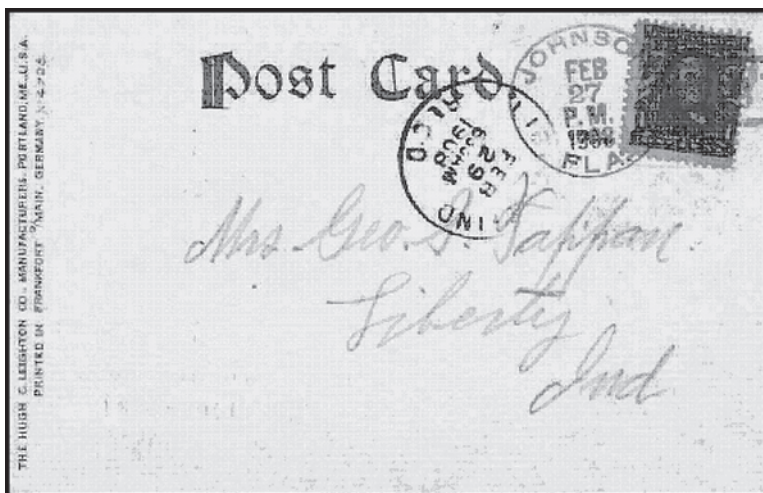 THE HUGH C. LEIGHTON CO., MANUFACTURERS, PORTLAND, ME., U.S.A.
PRINTED IN FRANKFORT O/MAIN, GERMANY.
Post Card
JOHNSO
FEB
27
P.M.
1908
FLA.
FEB
29
1908
IND
Mrs. Geo. S. Tappan.
Liberty
Ind